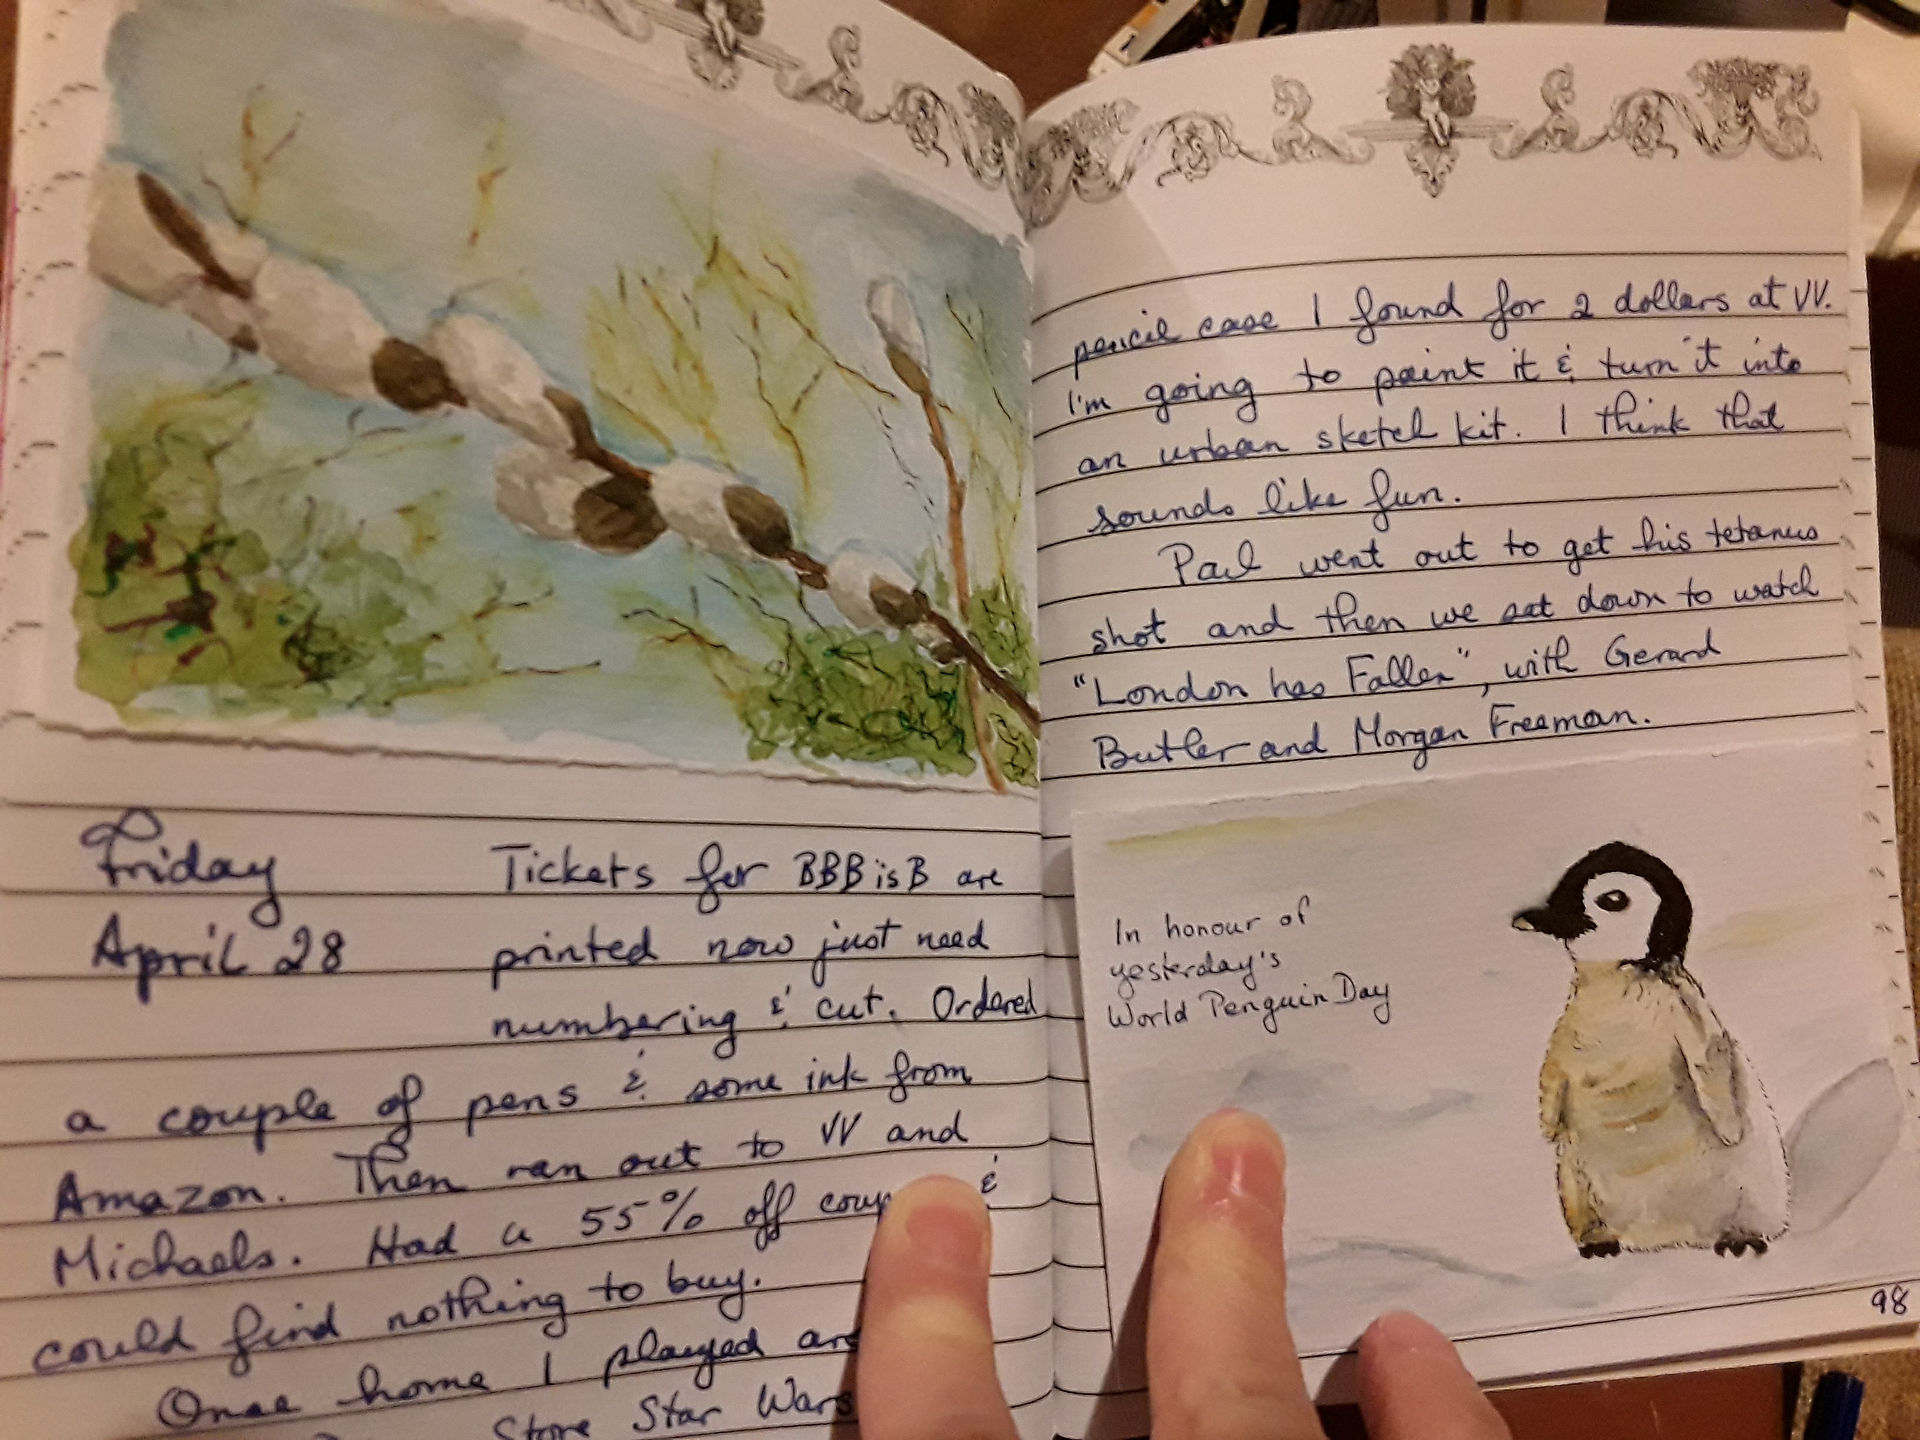 Friday
April 28
Tickets for BBBisB are
printed now just need
numbering & cut. Ordered
a couple of pens & some ink from
Amazon. Then ran out to VV and
Michaels. Had a 55% off &
could find nothing to buy.
Once home I played
Store Star Wars
pencil case I found for 2 dollars at VV.
I'm going to paint it & turn it into
an urban sketch kit. I think that
sounds like fun.
Paul went out to get his tetanus
shot and then we sat down to watch
"London has Fallen", with Gerard
Butler and Morgan Freeman.
In honour of
yesterday's
World Penguin Day
98